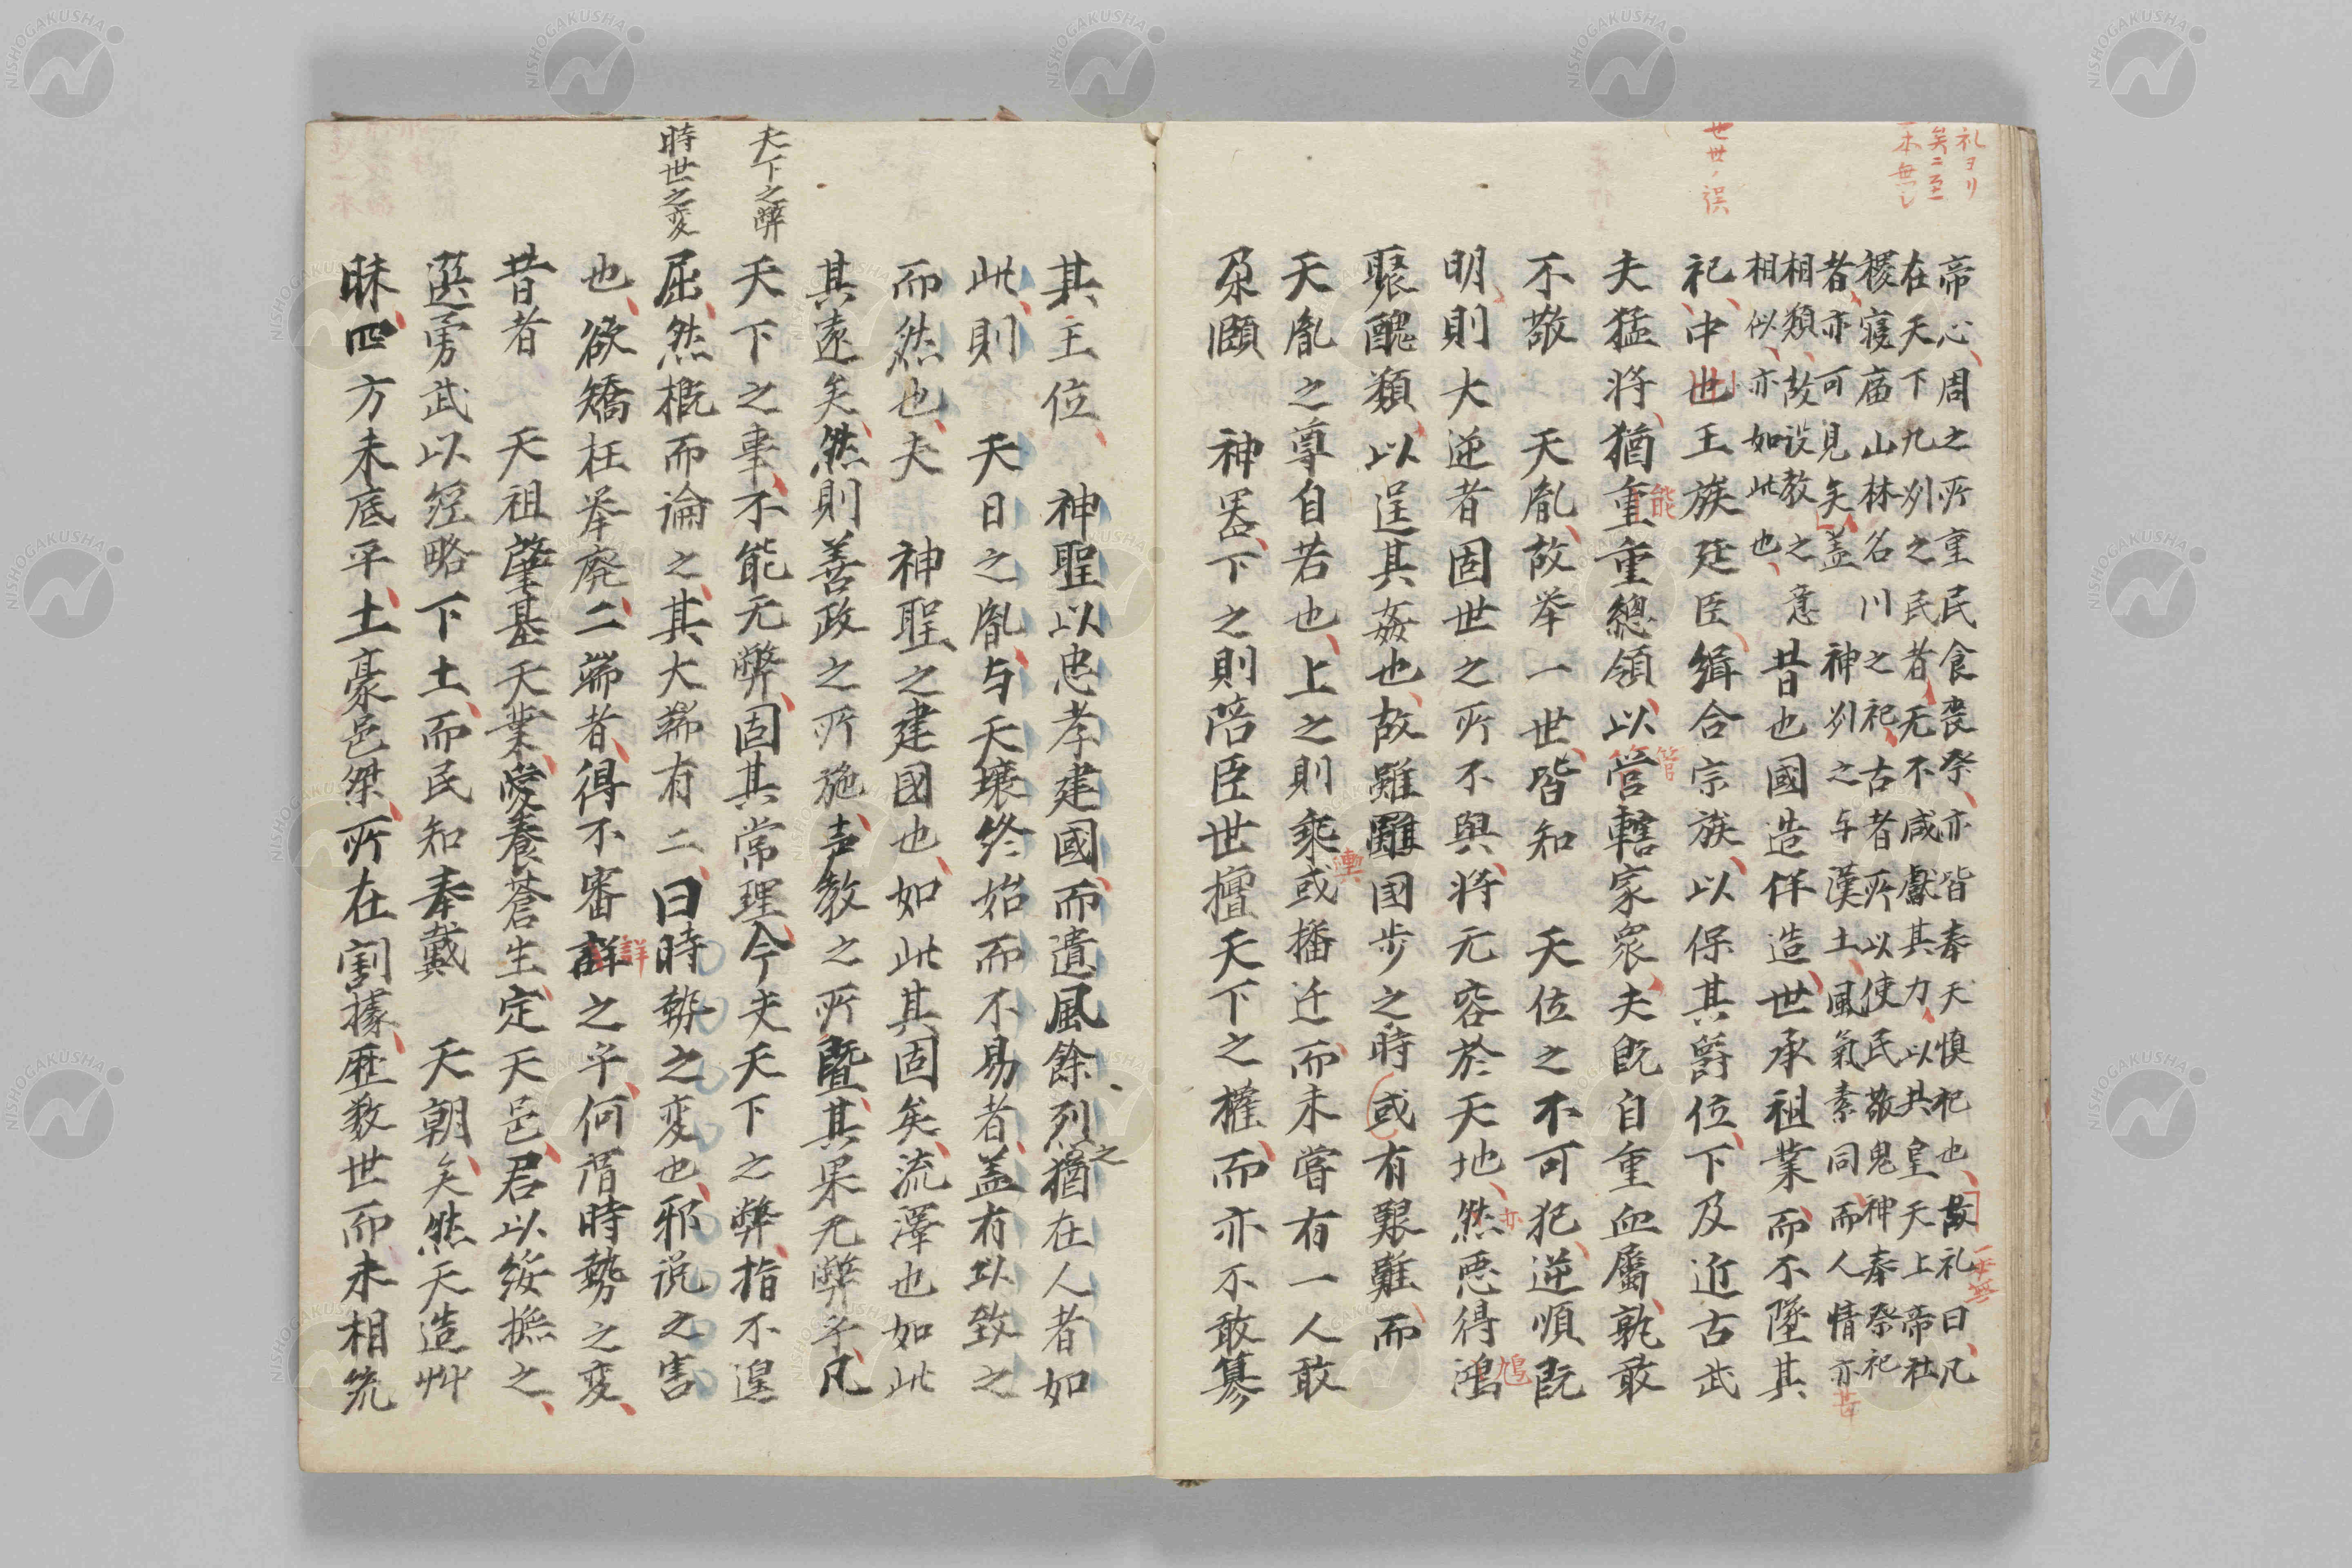 礼ヨリ
矣ニ至
一本無シ
世世ノ誤
帝心、周之所重民食喪祭、亦皆奉天慎祀也、故礼曰、凡
在天下九州之民者、无不咸獻其力、以共皇天上帝社
稷寝庙山林名川之祀、古者所以使民敬鬼神奉祭祀
者、亦可見矣、盖 神州之与漢土、風氣素同、而人情亦
相類、故設教之意
相似、亦如此也、
昔也國造伴造、世承祖業、而不墜其
祀、中也王族廷臣、緝合宗族、以保其爵位、下及近古武
夫猛将、猶重重總領、以管轄家衆、夫既自重血屬、孰敢
不敬 天胤、故举一世、皆知 天位之不可犯、逆順既
明、則大逆者固世之所不與、将无容於天地、然悪得鴻
聚醜類、以逞其姦也、故雖國步之時或有艱難、而
天胤之尊自若也、上之則乘或播迁、而未嘗有一人敢
朶頤 神器、下之則陪臣世擅天下之權、而亦不敢簒
能
管
亦
鳩
一本無
其主位、 神聖以忠孝建國、而遺風餘烈猶在人者如
之
此、則 天日之胤、与天壤終始而不易者、盖有以致之
而然也、夫 神聖之建國也、如此其固矣、流澤也如此
其遠矣、然則善政之所施、声教之所曁、其果无弊乎、凡
天下之弊
天下之事、不能无弊、固其常理、今夫天下之弊、指不遑
時世之变
屈、然概而論之、其大端有二、曰時勢之变也、邪説之害
也、欲矯枉举廃、二端者、得不審詳之乎、何謂時勢之变、
詳
昔者 天祖肇基天業、愛養蒼生、定天邑、君以綏撫之、
選勇武以経略下土、而民知奉戴 天朝矣、然天造艸
昧、四方未底平、土豪邑桀、所在割據、歴数世而未相統